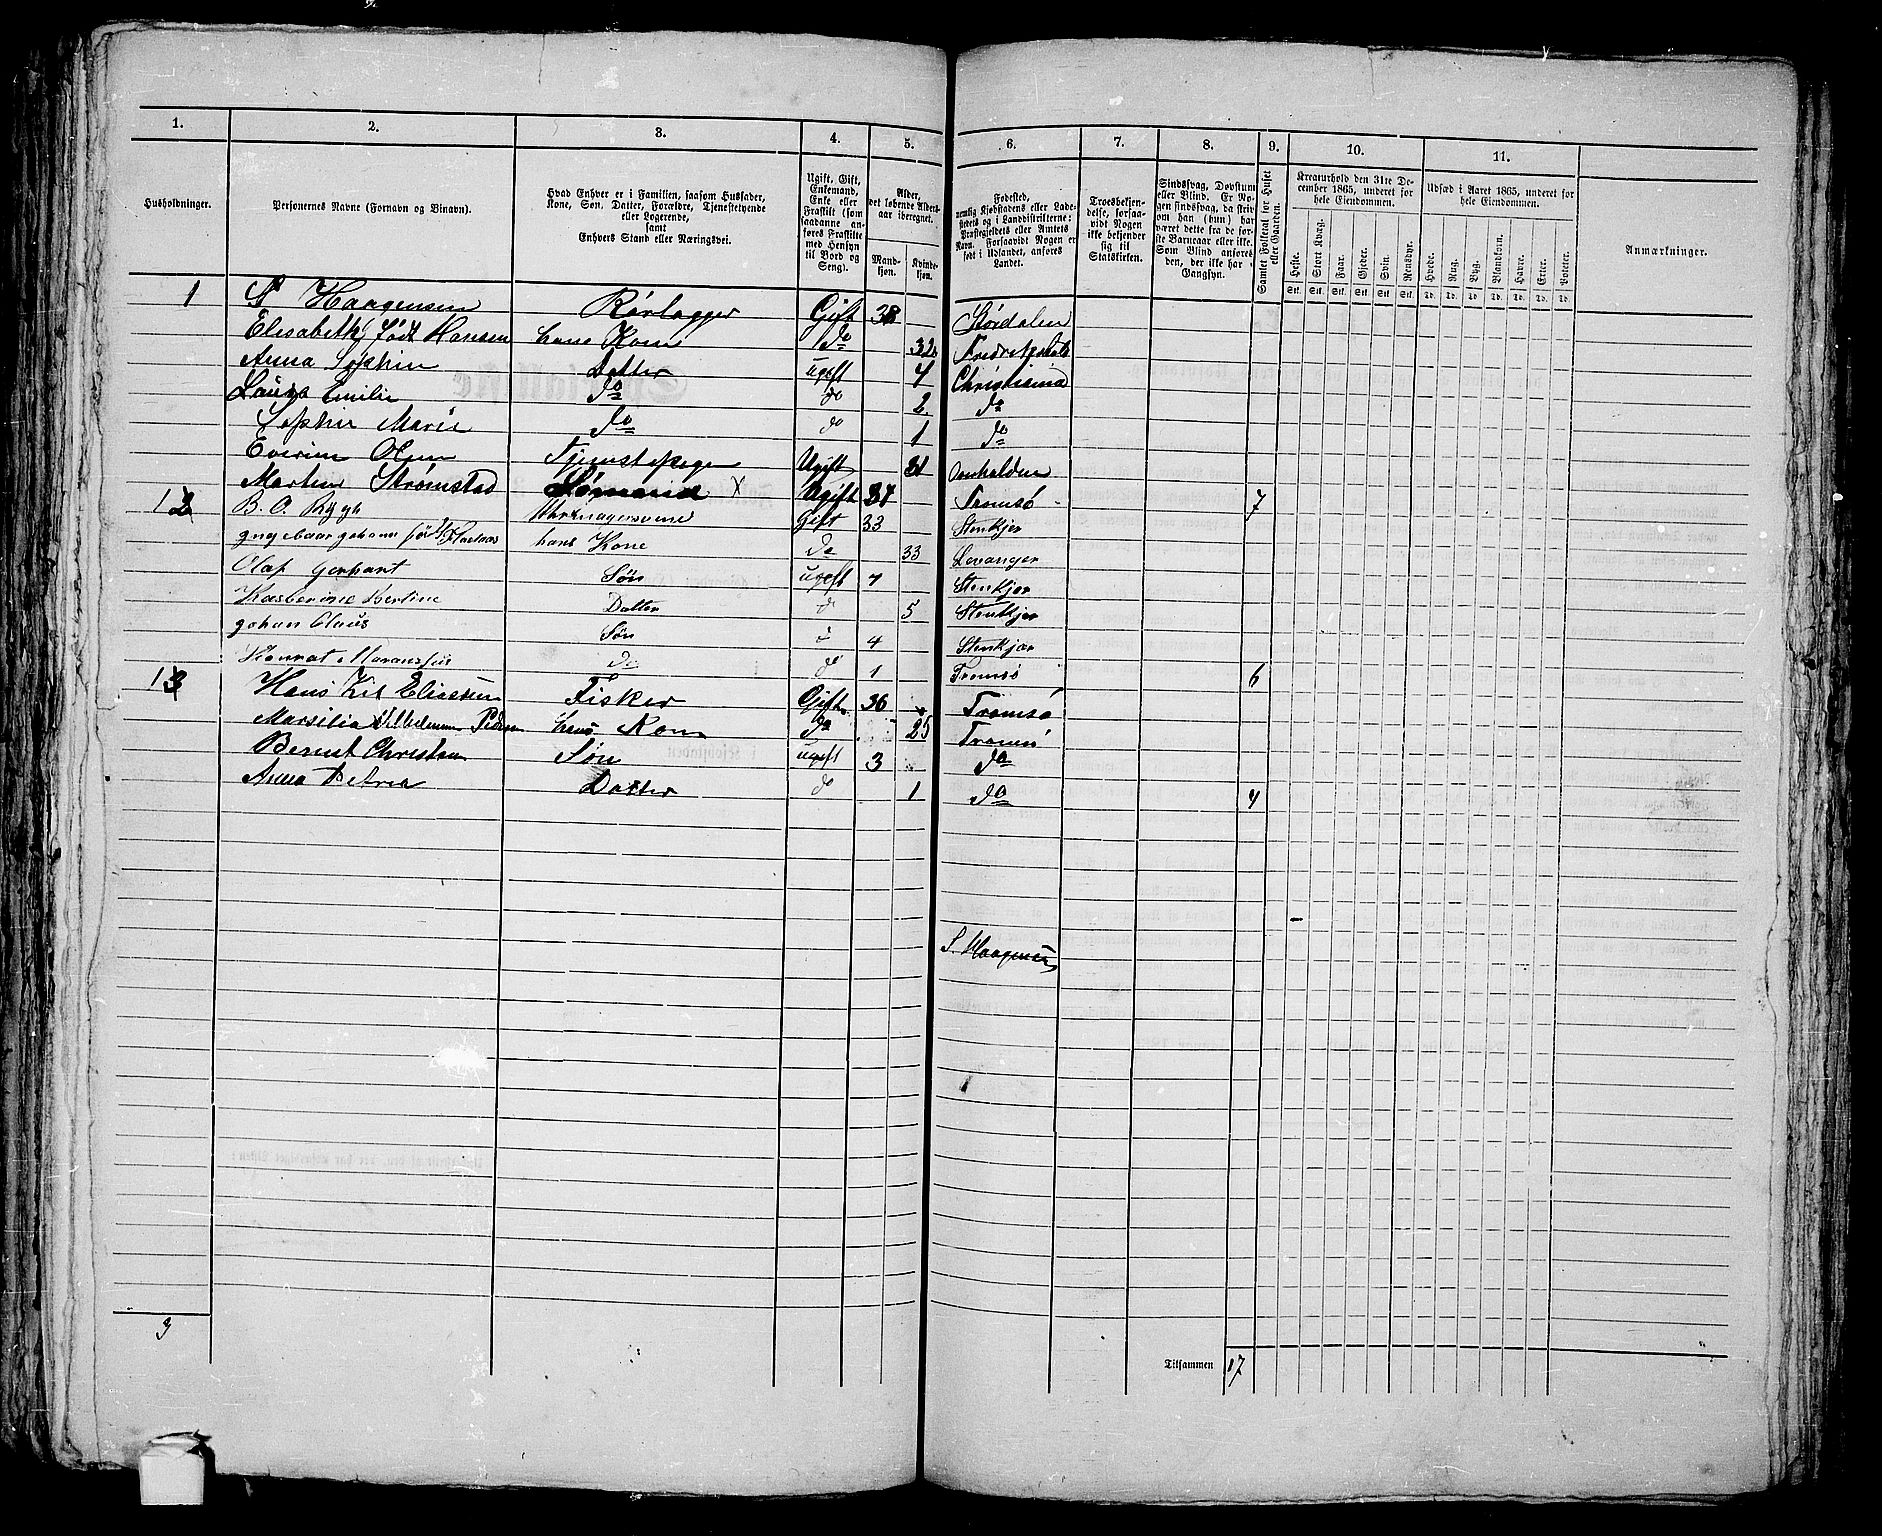 1. 2. 3. 4. 5. 6. 7. 8. 9. 10. 11.
Husholdninger.
Personernes Navne (Fornavn og Binavn).
Hvad Enhver er i Familien, saasom Husfader,
Kone, Søn, Datter, Forældre, Tjenestetyende
eller Logerende,
samt
Enhvers Stand eller Næringsvei.
Ugift, Gift,
Enkemand,
Enke eller
Fraskilt (som
saadanne an-
føres Fraskilte
med Hensyn
til Bord og
Seng).
Alder,
det løbende Alders-
aar iberegnet.
Mand-
kjøn.
Kvinde-
kjøn.
Fødested,
nemlig Kjøbstadens eller Lade-
stedets og i Landdistrikterne:
Præstegjeldets eller Amtets
Navn. Forsaavidt Nogen er
født i Udlandet, anføres
Landet.
Troesbekjen-
delse, forsaa-
vidt Nogen
ikke bekjender
sig til
Statskirken.
Sindssvag, Døvstum
eller Blind. Er No-
gen sindssvag, da skriv
om han (hun) har
været dette fra de før-
ste Barneaar eller ikke.
Som Blind anføres
den, der ikke har
Gangsyn.
Samlet Folketal for Huset
eller Gaarden.
Kreaturhold den 31te De-
cember 1865, underet for
hele Eiendommen.
Heste. Stort Kvæg. Faar. Gjeder. Svin. Rensdyr.
Stk. Stk. Stk. Stk. Stk. Stk.
Udsæd i Aaret 1865, underet for
hele Eiendommen.
Hvede. Rug. Byg. Blandkorn. Havre. Erter. Poteter.
Td. Td. Td. Td. Td. Td. Td.
Anmærkninger.
1 S Haagensen Rørlægger Gift 38 Størdalen
Elisabeth født Hansen hans Kone do 32 Fredrikshald
Anna Sophie Datter ugift 4 Christiania
Laura Emilie do do 2 do
Sophie Marie do do 1 do
Everine Olsen Tjenestepige Ugift 31
Martin Strømstad Sømand X Ugift 37 Tromsø 7
12 B. O. Rygh Gift 33 Stenkjer
hans Kone do 33 Levanger
Olaf Gerhart Søn ugift 7 Stenkjer
Datter do 5 Stenkjer
Johan Claus Søn do 4 Stenkjær
Konrat do do 1 Tromsø 6
13 Hans Eliassen Fisker Gift 36 Tromsø
Marsilia hans Kone do 25 Tromsø
Bernt Christian Søn ugift 3 do
Anna Petrea Datter do 1 do 4
S. Haagensen
3 Tilsammen 17